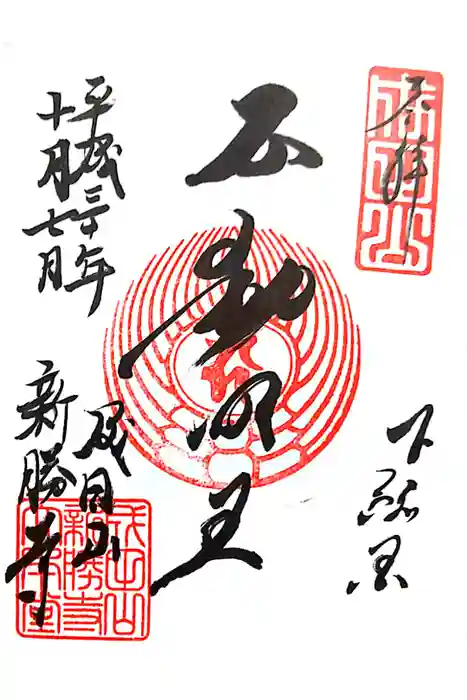 奉拝
成田山
下総国
不動明王
平成三十年
十月七日
成田山
新勝寺
成田山
新勝寺